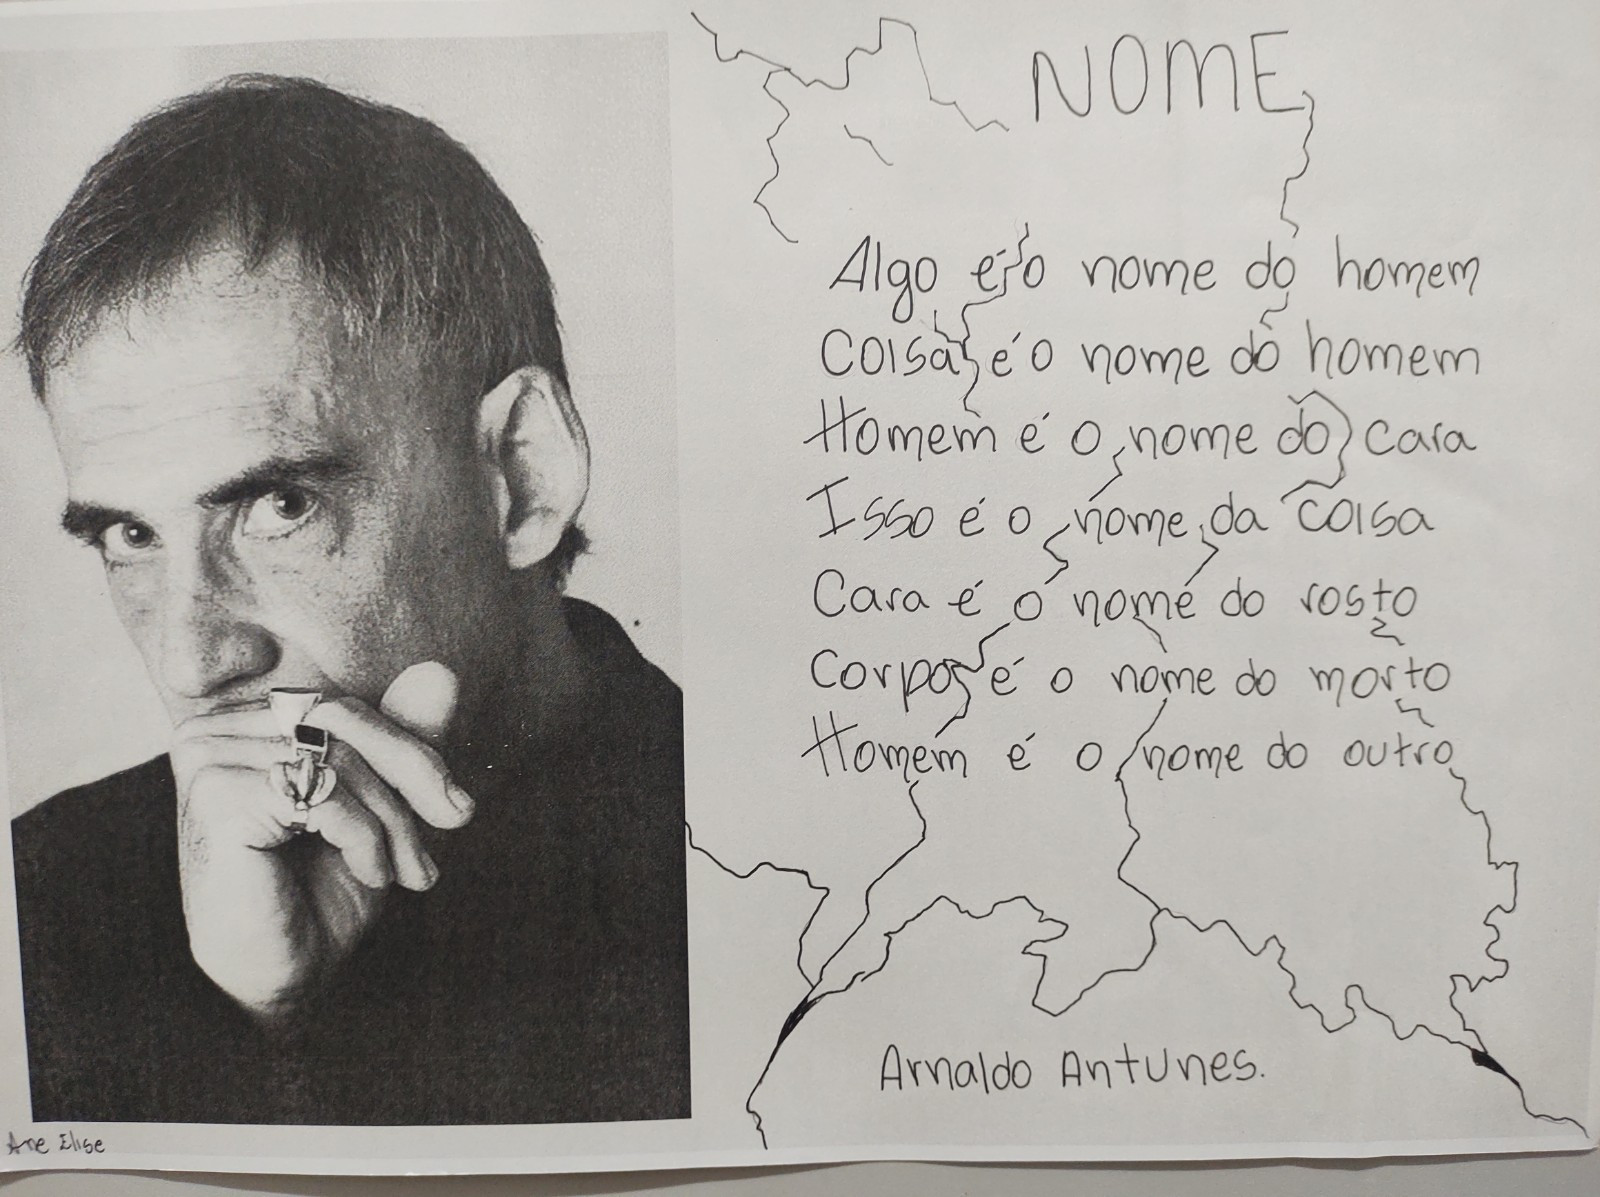 NOME
Algo é o nome do homem
Coisa é o nome do homem
Homem é o nome do cara
Isso é o nome da coisa
Cara é o nome do rosto
Corpo é o nome do morto
Homem é o nome do outro
Arnaldo Antunes.
Ane Elise